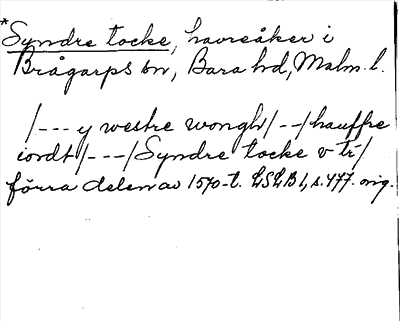 *Syndre tocke, havreåker i
Brågarps sn, Bara hd, Malm. l.
/--- y westre wongh/--/hauffre
iordt/---/Syndre tocke v tr/
förra delen av 1570-t. LSLB 1, s. 477. orig.